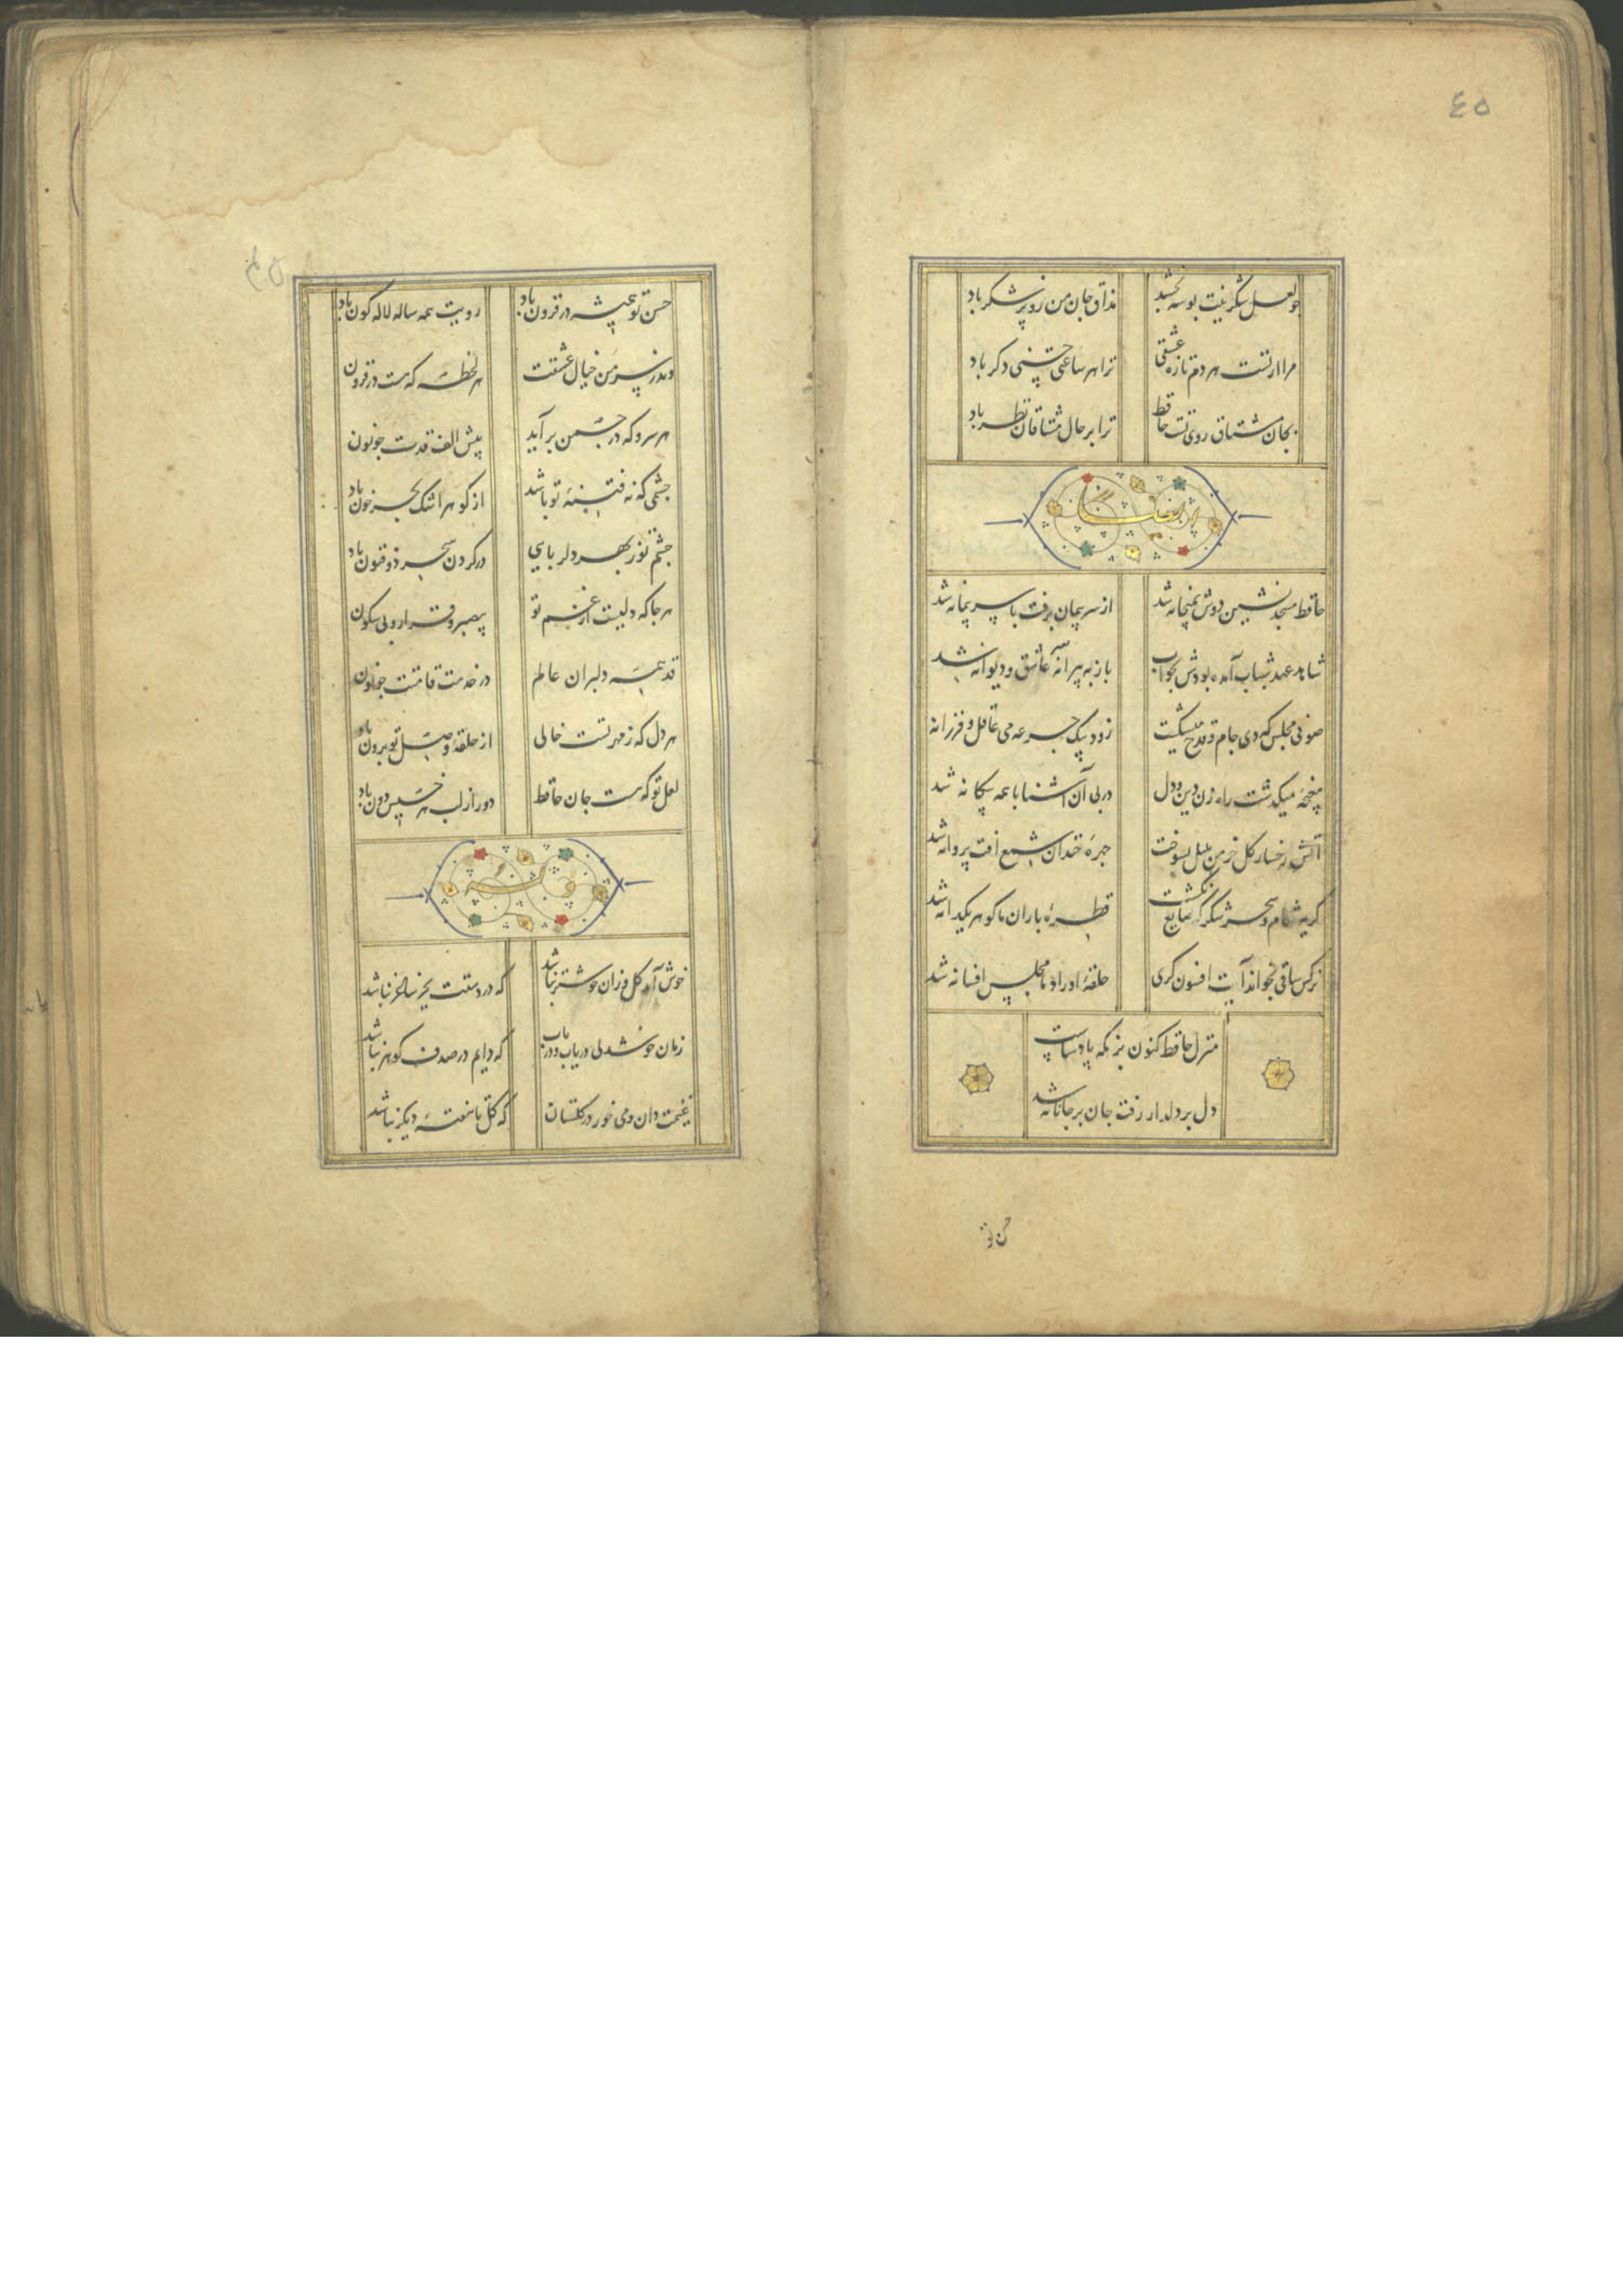 ٤٥
چو لعل شکرینت بوسه بخشد
مذاق جان من زو پر شکر باد
مرا از تست هر دم تازه عشقی
ترا هر ساعتی حسنی دگر باد
بجان مشتاق روی تست حافظ
ترا بر حال مشتاقان نظر باد
حافظ مسجد نشین دوش بمیخانه شد
از سر پیمان برفت با سر پیمانه شد
شاهد عهد شباب آمده بودش بخواب
باز به پیرانه سر عاشق و دیوانه شد
صوفی مجلس که دی جام و قدح میشکست
زود بیک جرعه می عاقل و فرزانه
مغبچه میگذشت راه زن دین و دل
در پی آن آشنا با همه بیگانه شد
آتش رخسار گل خرمن بلبل بسوخت
چهره خندان شمع آفت پروانه شد
گریه شام و سحر شکر که ضایع نگشت
قطره باران ما گوهر یکدانه شد
نرگس ساقی بخواند آیت افسون گری
حلقه اوراد ما مجلس افسانه شد
منزل حافظ کنون بزمگه پادشاست
دل بر دلدار رفت جان بر جانانه شد
حسن تو
حسن تو همیشه در فزون باد
رویت همه ساله لاله گون باد
وندر سر من خیال عشقت
هر لحظه که هست در فزون
هر سرو که در چمن بر آید
پیش الف قدت چو نون
چشمی که نه فتنه تو باشد
از گوهر اشک بحر خون باد
چشم تو ز بهر دلربایی
در کردن سحر ذو فنون باد
هر جا که دلیست از غم تو
بیصبر و قرار و بی سکون
قد همه دلبران عالم
در خدمت قامتت چو نون
هر دل که ز مهر تست خالی
از حلقه وصل تو برون باد
لعل تو که هست جان حافظ
دور از لب هر خسیس دون باد
خوش آمد گل وزان خوشتر نباشد
که در دستت بجز ساغر نباشد
زمان خوشدلی دریاب و دریاب
که دایم در صدف گوهر نباشد
غنیمت دان و می خور در گلستان
که گل تا هفته دیگر نباشد